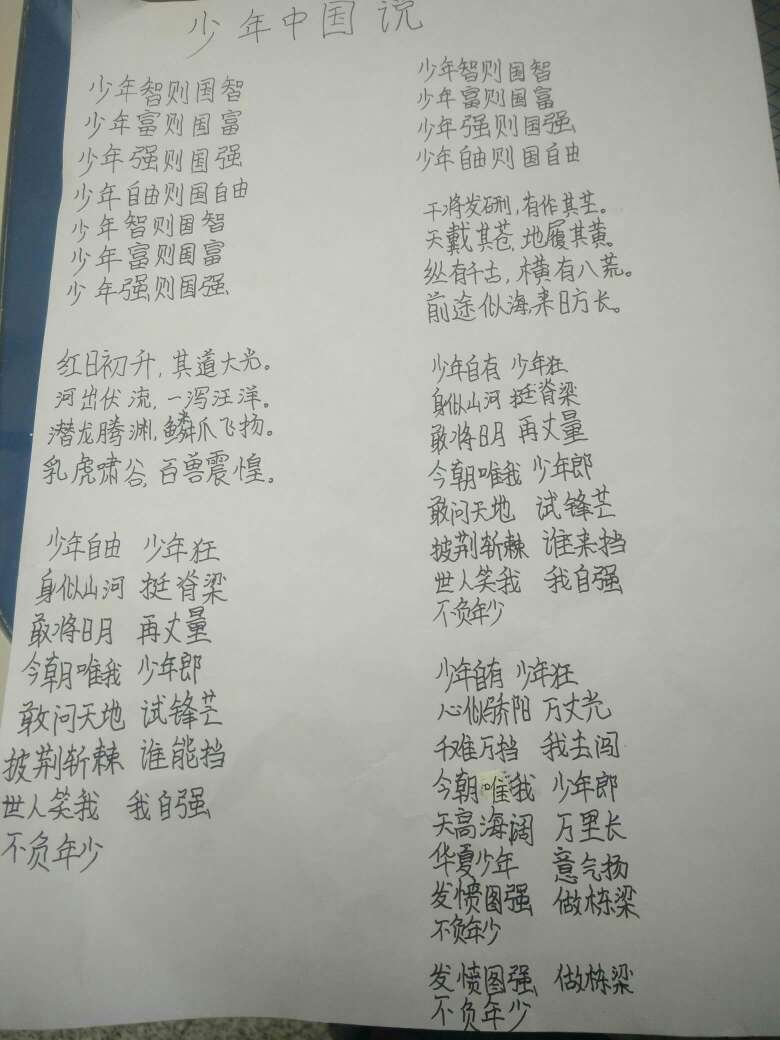 少年中国说
少年智则国智
少年富则国富
少年强则国强
少年自由则国自由
少年智则国智
少年富则国富
少年强则国强
红日初升,其道大光。
河出伏流,一泻汪洋。
潜龙腾渊,鳞爪飞扬。
乳虎啸谷,百兽震惶。
少年自由 少年狂
身似山河 挺脊梁
敢将日月 再丈量
今朝唯我 少年郎
敢问天地 试锋芒
披荆斩棘 谁能挡
世人笑我 我自强
不负年少
少年智则国智
少年富则国富
少年强则国强
少年自由则国自由
干将发硎,有作其芒。
天戴其苍,地履其黄。
纵有千古,横有八荒。
前途似海,来日方长。
少年自有 少年狂
身似山河 挺脊梁
敢将日月 再丈量
今朝唯我 少年郎
敢问天地 试锋芒
披荆斩棘 谁来挡
世人笑我 我自强
不负年少
少年自有 少年狂
心似骄阳 万丈光
千难万挡 我去闯
今朝唯我 少年郎
天高海阔 万里长
华夏少年 意气扬
发愤图强 做栋梁
不负年少
发愤图强 做栋梁
不负年少